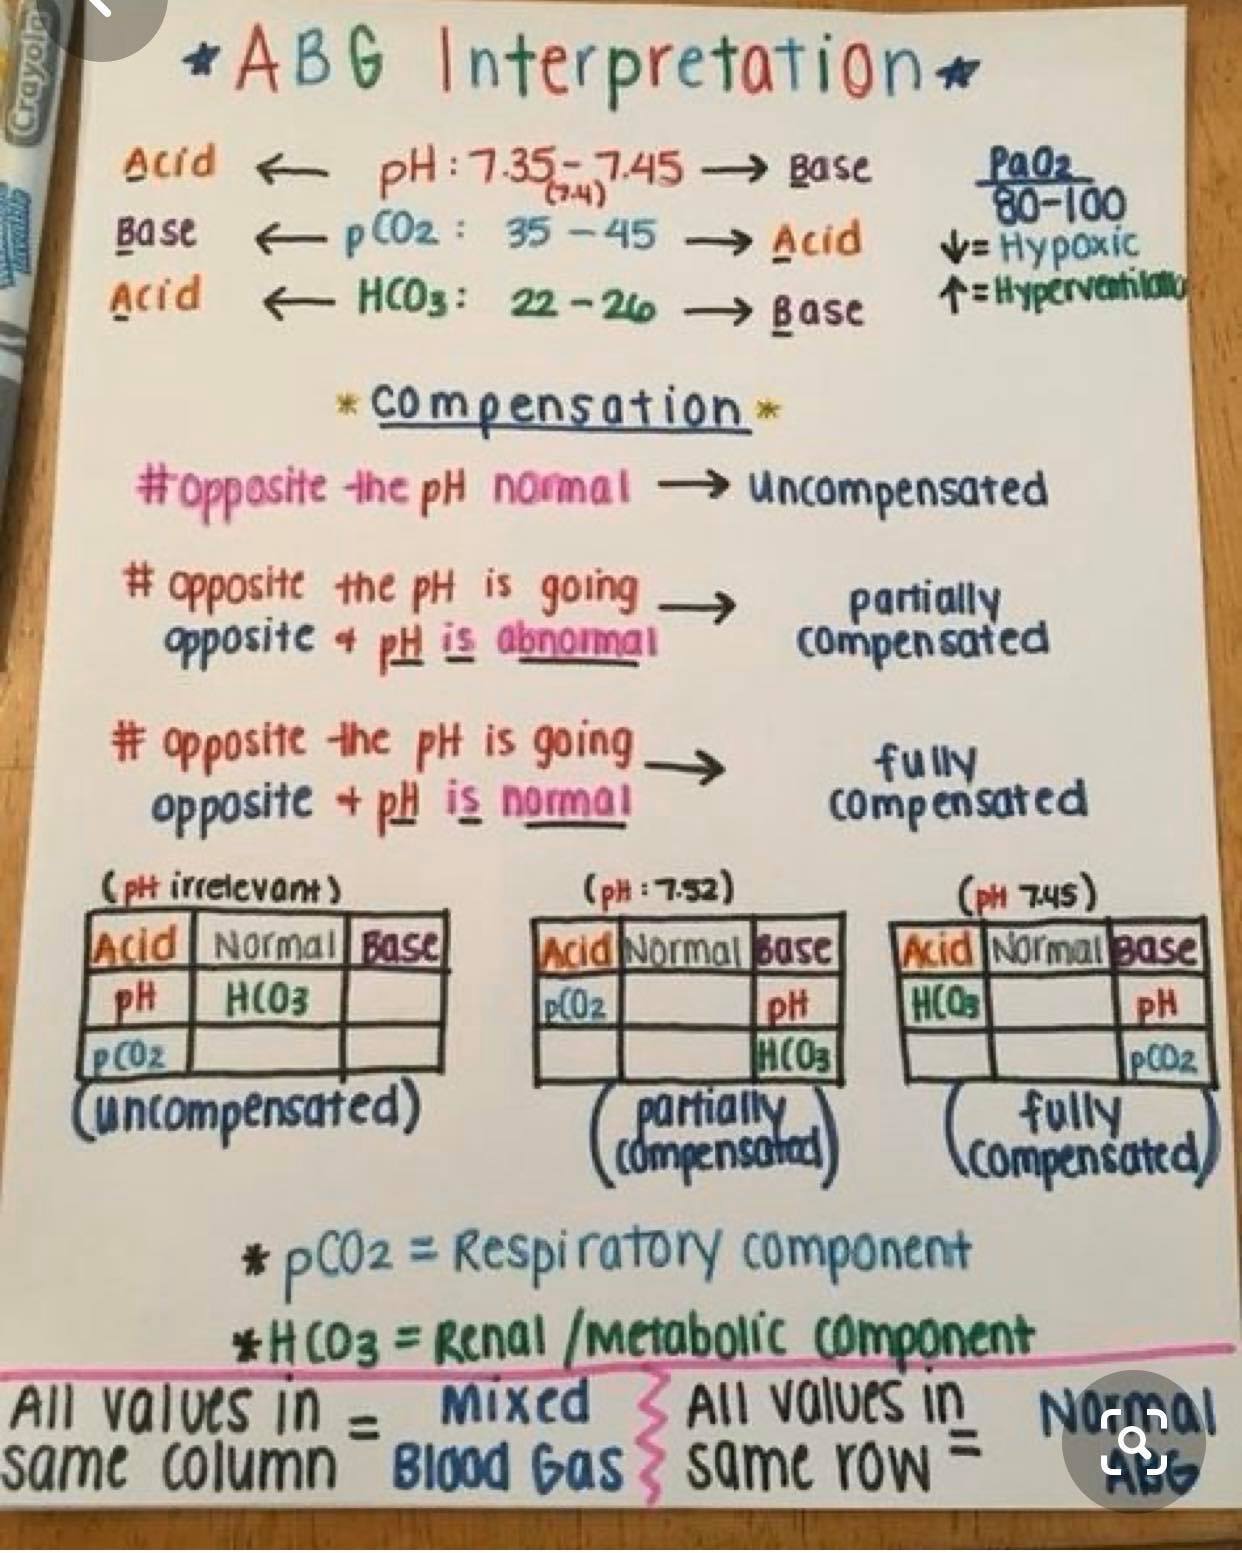 Crayola
*ABG Interpretation*
Acid ← pH: 7.35-7.45 → Base
(7.4)
Base ← pCO2: 35-45 → Acid
Acid ← HCO3: 22-26 → Base
PaO2
80-100
↓= Hypoxic
↑=Hyperventilatio
*compensation*
#opposite the pH normal → uncompensated
# opposite the pH is going
opposite + pH is abnormal
→ partially
compensated
# opposite the pH is going
opposite + pH is normal
→ fully
compensated
(pH irrelevant)
Acid Normal Base
pH HCO3
pCO2
(uncompensated)
(pH:7.52)
Acid Normal Base
pCO2 pH
HCO3
(partially
compensated)
(pH 7.45)
Acid Normal Base
HCO3 pH
pCO2
(fully
compensated)
*pCO2 = Respiratory component
*HCO3 = Renal/Metabolic component
All values in
same column
= Mixed
Blood Gas
All values in
same row
= Normal
ABG